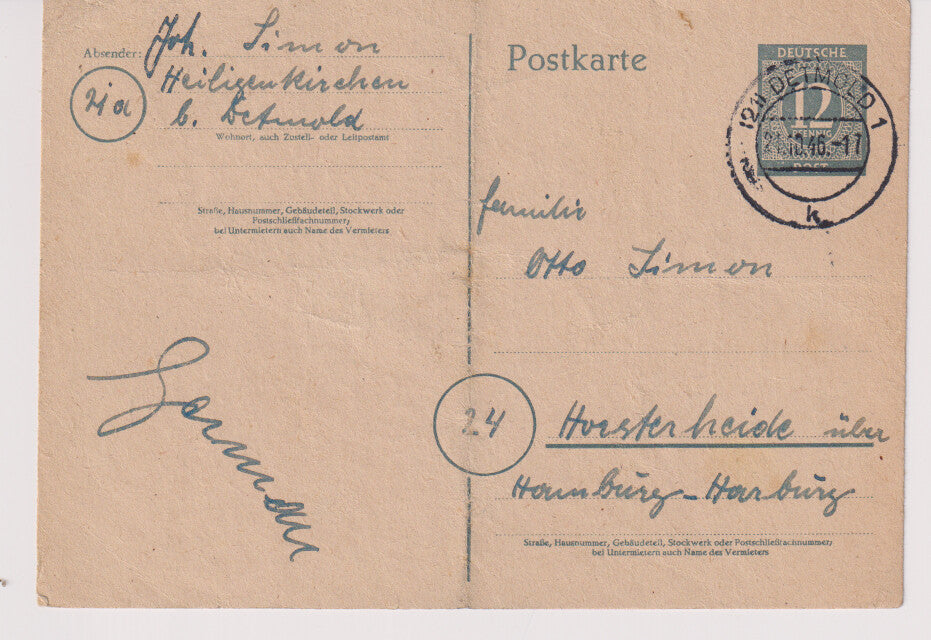 Absender: Joh. Simon
21a Heiligenkirchen
b. Detmold
Wohnort, auch Zustell- oder Leitpostamt
Straße, Hausnummer, Gebäudeteil, Stockwerk oder
Postschließfachnummer;
bei Untermietern auch Name des Vermieters
Postkarte
DEUTSCHE
12
PFENNIG
POST
(21) DETMOLD 1
21.10.46.-17
k
Familie
Otto Simon
24
über
Hamburg-Harburg
Straße, Hausnummer, Gebäudeteil, Stockwerk oder Postschließfachnummer;
bei Untermietern auch Name des Vermieters